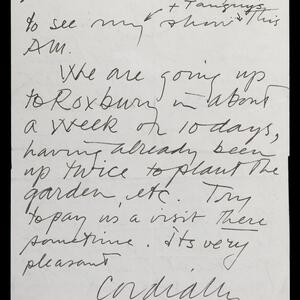 + Tanguys
to see my show this
A.M.
We are going up
to Roxbury in about
a week or 10 days,
having already been
up twice to plant the
garden, etc. Try
to pay us a visit there
sometime. Its very
pleasant
Cordially